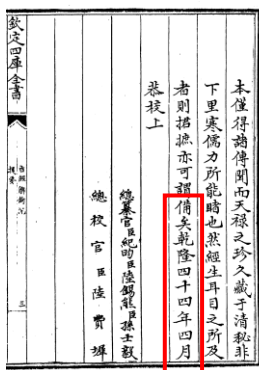 本僅得諸傳聞而天祿之珍久藏于清秘非
下里寒儒力所能睹也然經生耳目之所及
者則捃摭亦可謂備矣乾隆四十四年四月
恭校上
總纂官臣紀昀臣陸錫熊臣孫士毅
總校官臣陸費墀
欽定四庫全書
提要
三